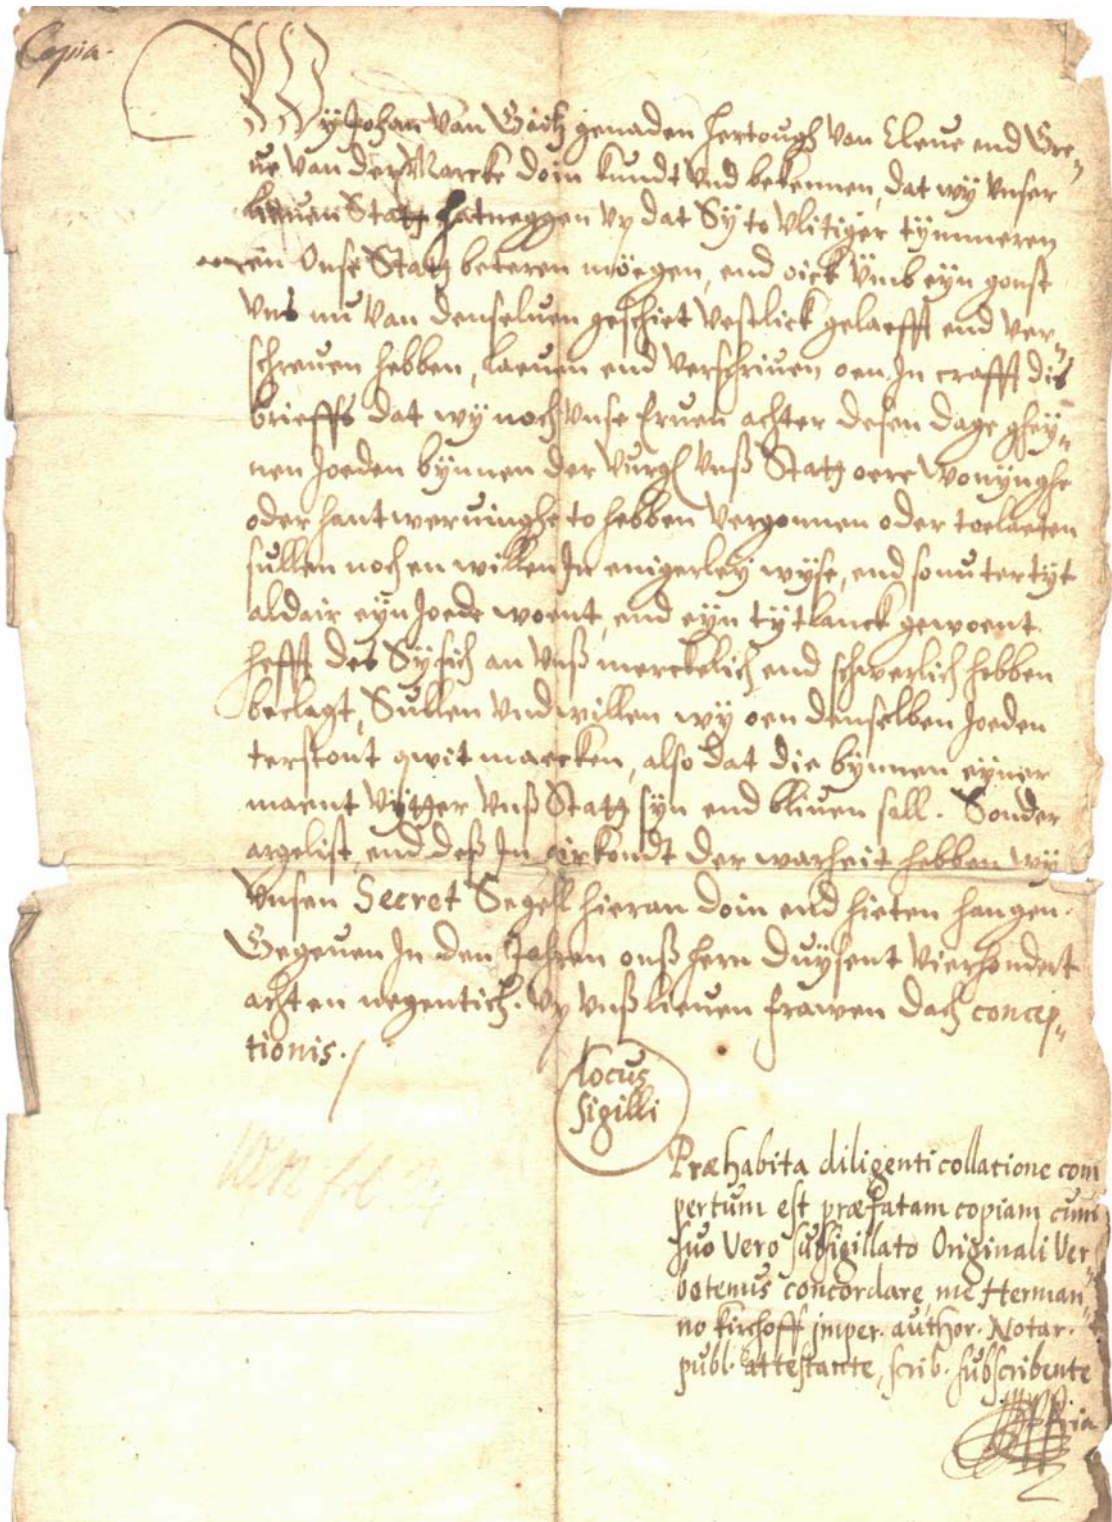 Copia.
Wÿ Johan van Gaitz genaden hertough van Cleue end Gre„
ue van der Marcke doin kundt vnd bekennen, dat wÿ vnser
lieuen Statz Hatneggen vp dat Sÿ to vlitiger tÿmmeren
en Onse Statz beteren moegen, end oick ümb eÿn gonst
vns nu van denseluen geschiet vestlick gelaefft end ver„
schreuen hebben, laeuen end verschriuen oen In crafft dis
brieffs dat wÿ noch vnse Eruen achter desen dage gheÿ„
nen Joeden bÿnnen der vurgl vnß Statz oere wonÿnghe
oder hantweruinghe to hebben vergonnen oder toelaeten
sullen noch en willen In enigerleÿ wÿse, end so nu tertÿt
aldair eÿn Joede woent, end eÿn tÿtlanck gewoent
hefft des Sÿ sich an vnß merckelich end schwerlich hebben
beclagt, Sullen vnd willen wÿ oen denselben Joeden
terstont qwit maecken, also dat die bÿnnen eÿner
maent vÿtger vnß Statz sÿn end bliuen sall. Sonder
argelist, end deß In oirkondt der warheit hebben wÿ
vnsen Secret Segell hieran doin end hieten hangen.
Gegeuen In den Jahren onß hern duÿsent vierhondert
acht en negentich. vp vnß lieuen frawen dach concep„
tionis.
Locus
Sigilli
Præhabita diligenti collatione com
pertum est præfatam copiam cum
suo Vero subsigillato Originali Ver„
botenus concordare, me Herman„
no kirchoff imper. author. Notar.
publ. attestante, scrib. subscribente